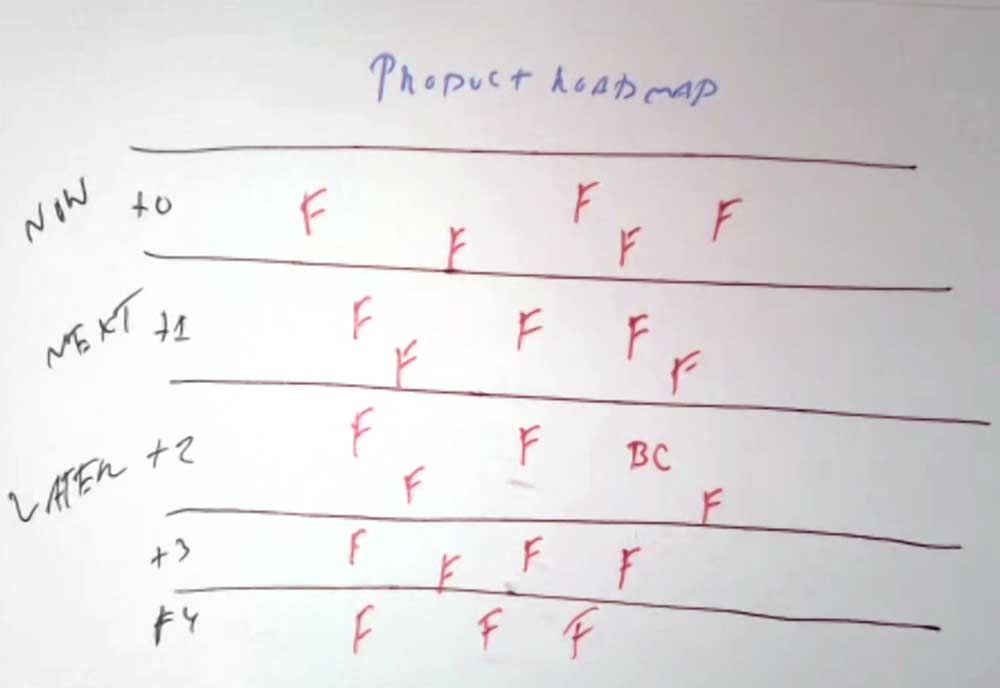 PRODUCT ROADMAP
NOW +0 F F F F F
NEXT +1 F F F F F
LATER +2 F F F BC F
+3 F F F F
+4 F F F